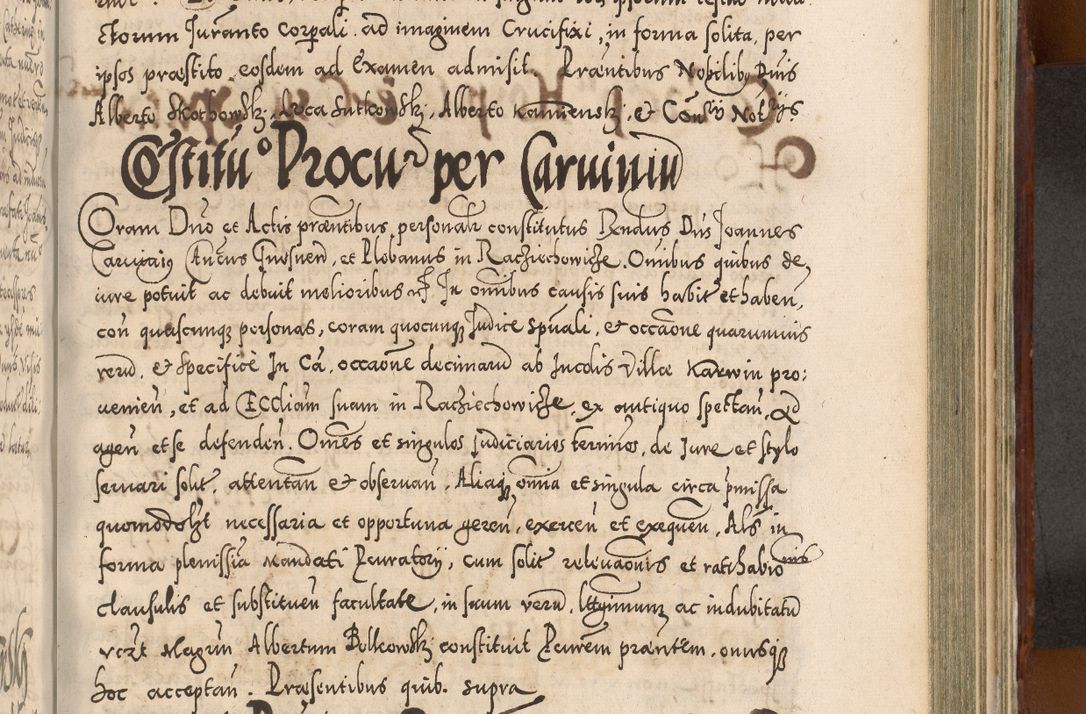 ctorum Juranto corpali ad imaginem Crucifixi, in forma solita, per
ipsos præstito, eosdem ad Examen admisit. Præntibus Nobilibus Dnis
Alberto Skothowski, Luca Sutkowski, Alberto Kamienski, et Notrijs
Constitutio Procuris per Carvinium
Coram Dno et Actis præntibus personalr constitutus Rendus Dns Joannes
Carvinius Gnosnen, et Plobanus in Raciechowicze. Omibus quibus de
iure potuit ac debuit melioribus In omibus causis suis habit et haben,
con quascunque personas, coram quocunque Judice spuali, et occaone quarumuis
rerum, et specifice In Ca, occaone decimarum ab Incolis villæ Karwin pro:
uenien, et ad Eccliam suam in Raciechowicze, ex antiquo spectan, Ad
agen et se defenden. Omes et singulos judiciarios terminos, de Jure et stylo
seruari solit, attentan et obseruan, Aliaque omia et singula circa pmissa
quomodolzt necessaria et opportuna geren, exercen et exequen, Als in
forma plenissia Mandati Pcuratorij, cum solit releuaonis et ratihabionis
clausulis et substituen facultate, in suum verum, lttgimum ac indubitatum
Magrum Albertum Bolkowski constituit Pcurem præntem, onusque
hoc acceptan. Præsentibus quib. supra